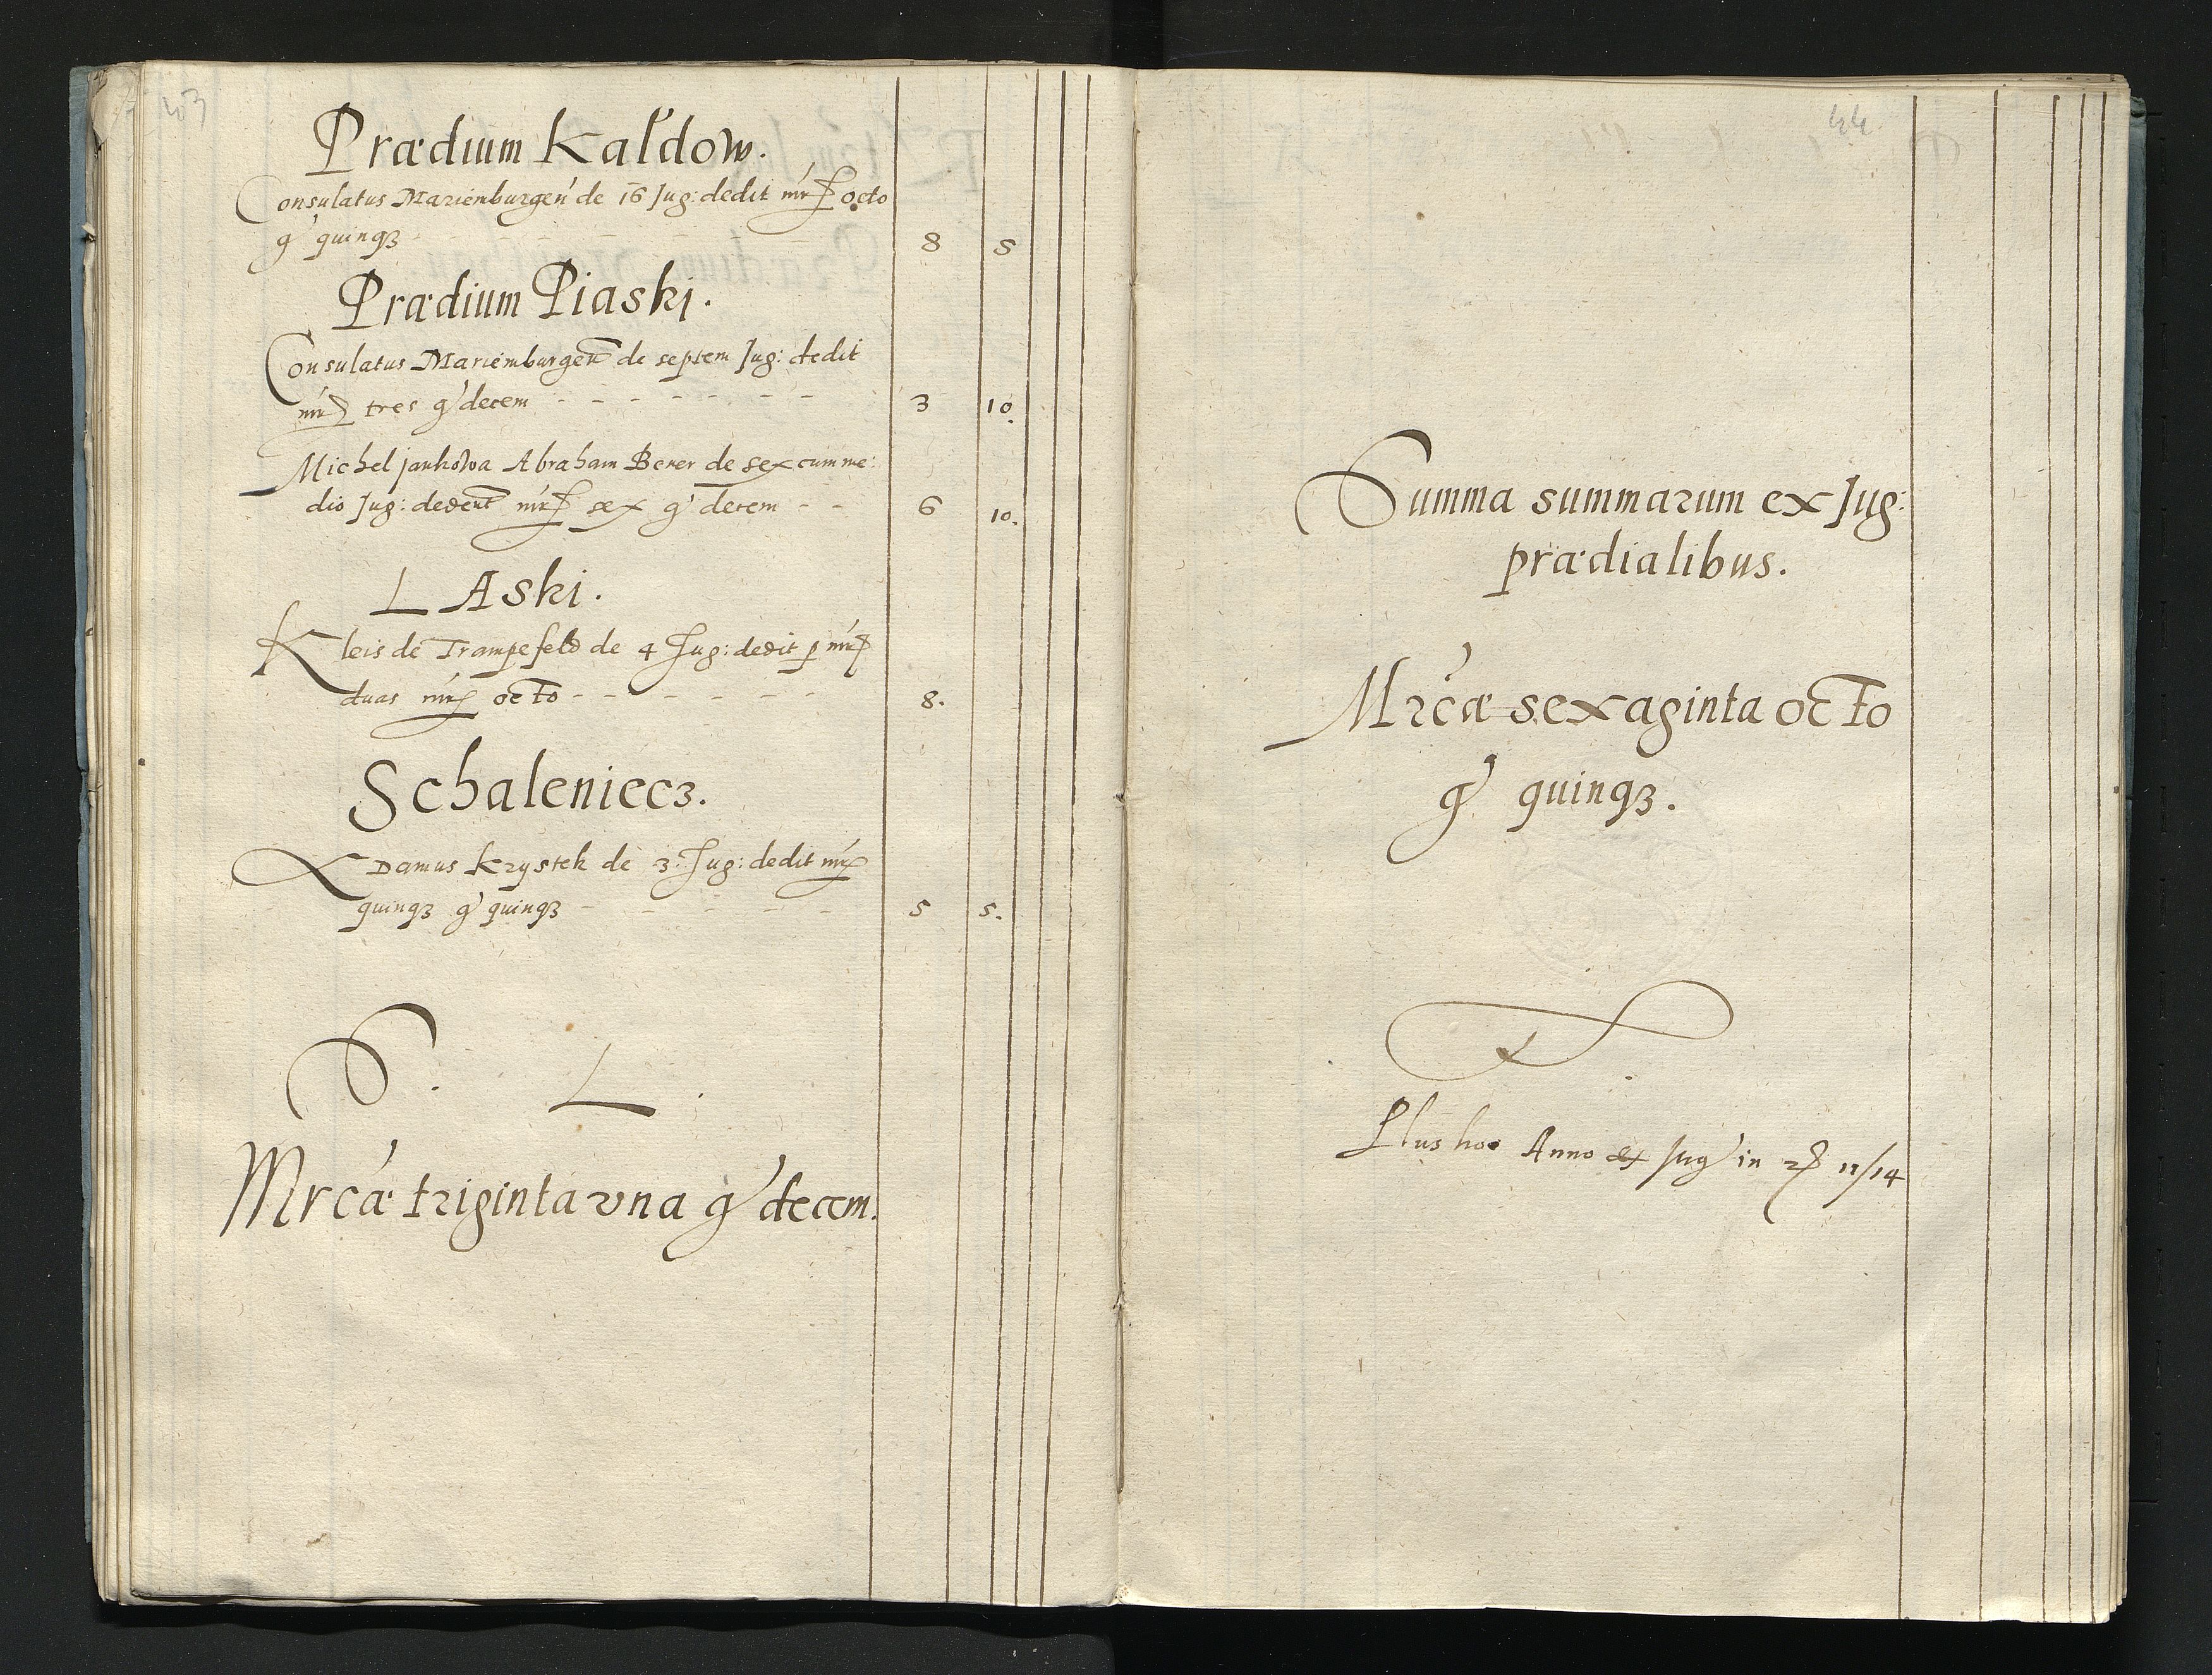 43
Prædium Kałdow.
Consulatus Marienburgen de 16 Jug: dedit mr octo
g quinqȝ - - - - - - 8 5
Prædium Piaski.
Consulatus Mariemburgen de septem Jug: dedit
mr tres g decem - - - - - - - 3 10.
Michel jankowa Abraham Berer de sex cum me:
dio Jug: dederūt mr sex g decem - - 6 10.
LAski.
Kleis de Trampefeld de 4 Jug: dedit p mr
duas mr octo - - - - - - - 8.
Schalenieccȝ.
ADamus Krystek de 3: Jug: dedit mr
quinqȝ g quinqȝ - - - - - 5 5.
S. L.
Mrcæ triginta vna g decem.
44
Summa summarum ex Jug:
prædialibus.
Mrcæ sexaginta octo
g quinqȝ.
Plus hoc Anno ex Jug in 11/14